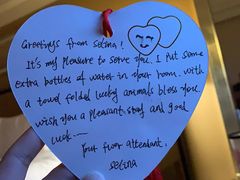 Greetings from selina!
It's my pleasure to serve you. I put some
extra bottles of water in your room. with
a towel folded lucky animals bless you.
wish you a pleasant stay and good
luck~~
your floor attendant.
selina